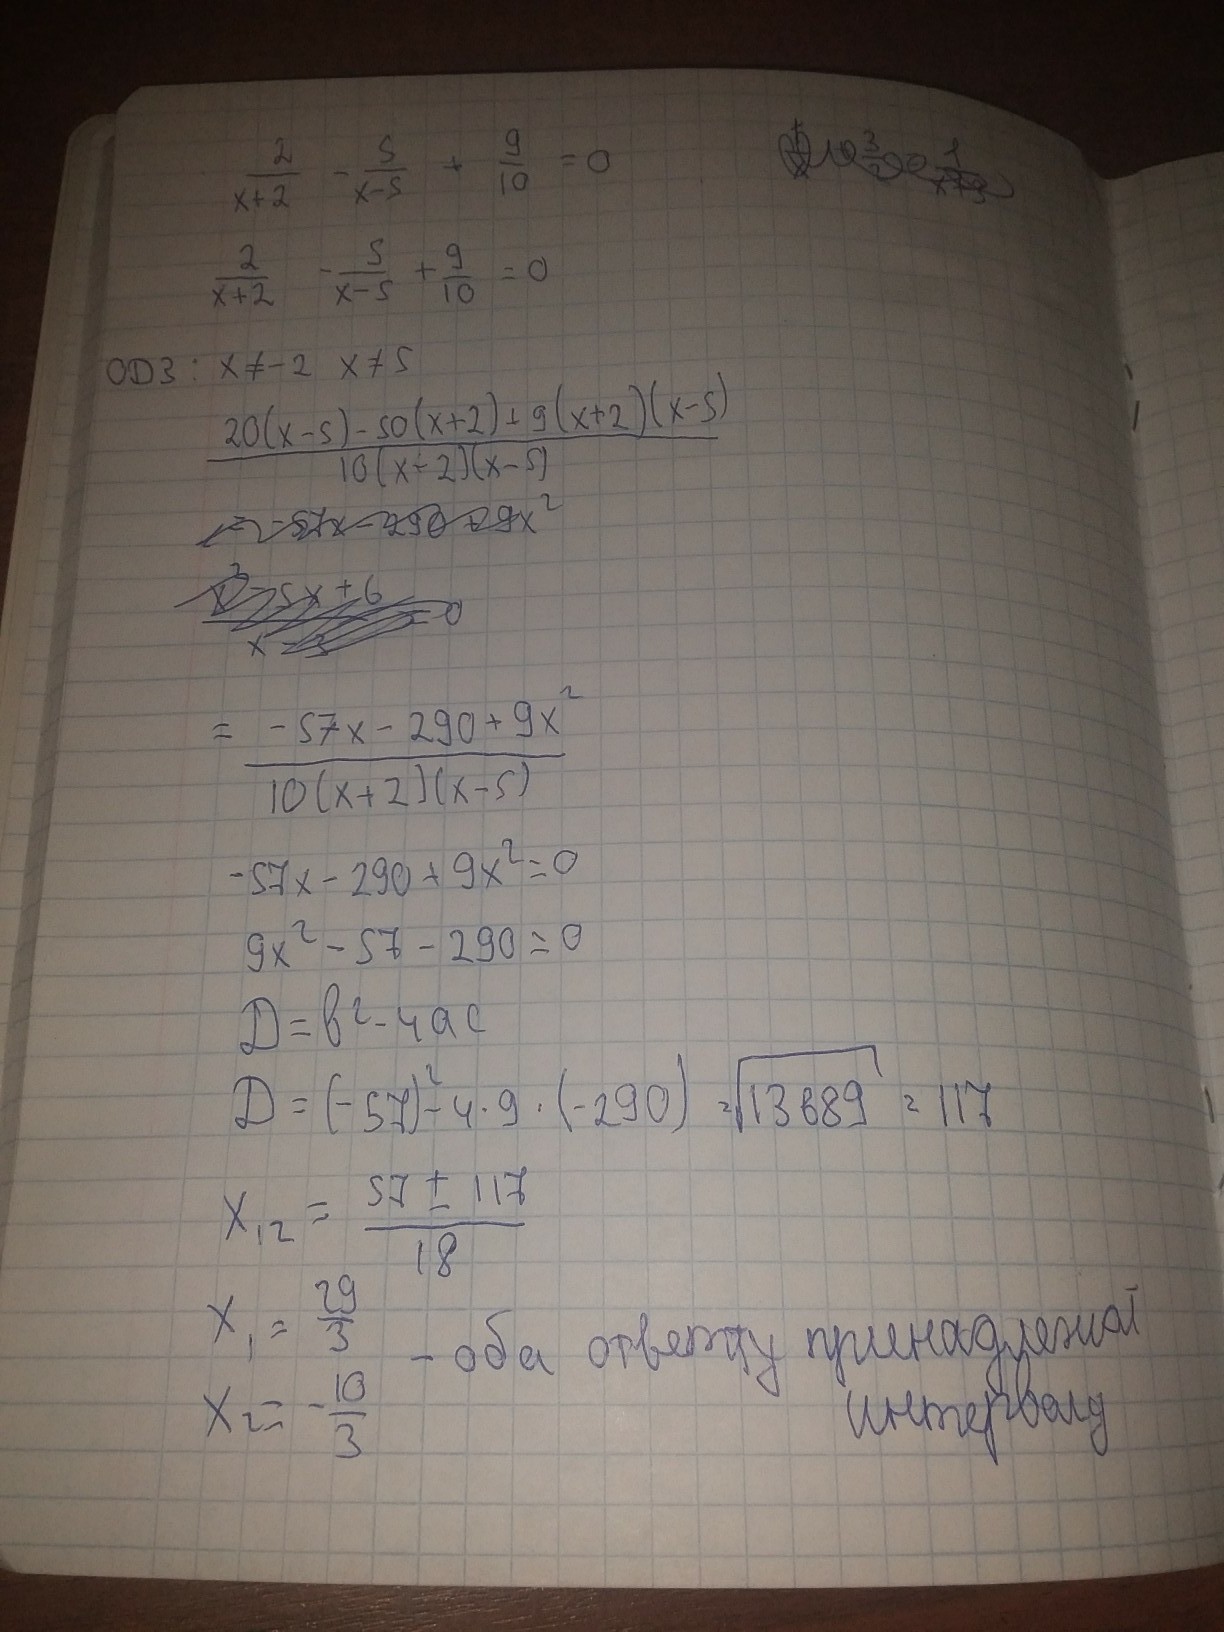 2/(x+2) - 5/(x-5) + 9/10 = 0
2/(x+2) - 5/(x-5) + 9/10 = 0
ОДЗ: x ≠ -2 x ≠ 5
(20(x-5) - 50(x+2) + 9(x+2)(x-5))/(10(x+2)(x-5))
= -57x - 290 + 9x²
x² - 5x + 6
= (-57x - 290 + 9x²)/(10(x+2)(x-5))
-57x - 290 + 9x² = 0
9x² - 57 - 290 = 0
D = b² - 4ac
D = (-57)² - 4·9·(-290) = √13689 = 117
x₁,₂ = (57 ± 117)/18
x₁ = 29/3
x₂ = -10/3
- оба ответы принадлежат
интервалу